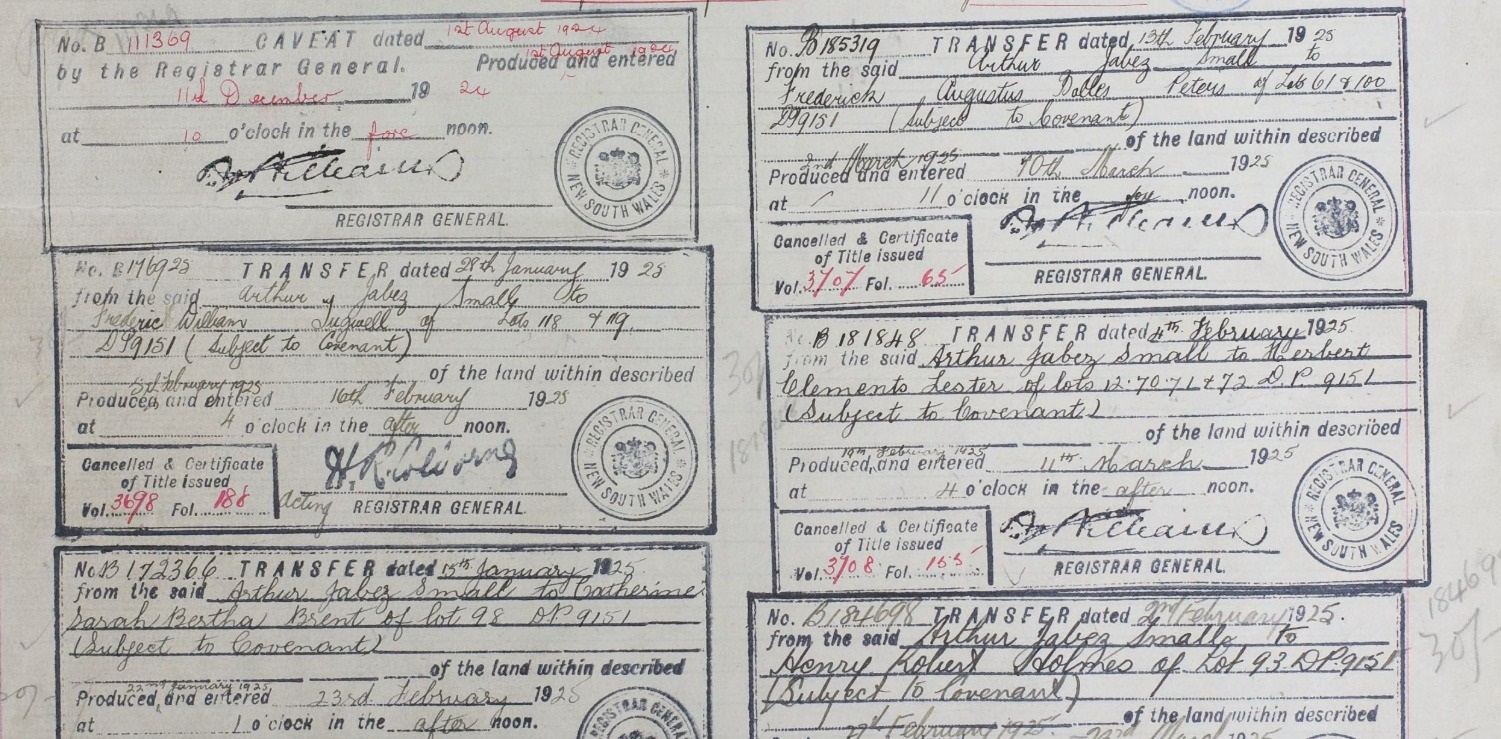 No. B 111369 CAVEAT dated 1st August 1924
by the Registrar General. Produced and entered
1st August 1924
11th December 19 24
at 10 o'clock in the fore noon.
REGISTRAR GENERAL.
REGISTRAR GENERAL NEW SOUTH WALES
No. B176925 TRANSFER dated 28th January 19 25
from the said Arthur Jabez Small to
Frederic William Tugwell of Lots 118 & 119
DP9151 (Subject to Covenant)
of the land within described
3rd February 1925
Produced and entered 16th February 1925
at 4 o'clock in the after noon.
Cancelled & Certificate
of Title issued
Vol. 3698 Fol. 188
Acting REGISTRAR GENERAL.
REGISTRAR GENERAL NEW SOUTH WALES
No. B 172366 TRANSFER dated 15th January 1925.
from the said Arthur Jabez Small to Catherine
Sarah Bertha Brent of lot 98 DP 9151
(Subject to Covenant)
of the land within described
22nd January 1925
Produced and entered 23rd February 1925
at 1 o'clock in the after noon.
REGISTRAR GENERAL
No. B185319 TRANSFER dated 13th February 19 25
from the said Arthur Jabez Small to
Frederick Augustus Peters of Lots 61 & 100
DP9151 (Subject to Covenant)
of the land within described
2nd March 1925
Produced and entered 10th March 1925
at 11 o'clock in the fore noon.
Cancelled & Certificate
of Title issued
Vol. 3707 Fol. 65
REGISTRAR GENERAL.
REGISTRAR GENERAL NEW SOUTH WALES
B 181848 TRANSFER dated 4th February 1925.
from the said Arthur Jabez Small to Herbert
Clements Lester of lots 12.70.71 & 72 D.P. 9151
(Subject to Covenant)
of the land within described
19th February 1925
Produced and entered 11th March 1925
at 4 o'clock in the after noon.
Cancelled & Certificate
of Title issued
Vol. 3708 Fol. 155
REGISTRAR GENERAL.
REGISTRAR GENERAL NEW SOUTH WALES
No. B184698 TRANSFER dated 2nd February 1925.
from the said Arthur Jabez Small to
Henry Robert Holmes of Lot 93 DP.9151
(Subject to Covenant)
of the land within described
February 1925
18469
30/-